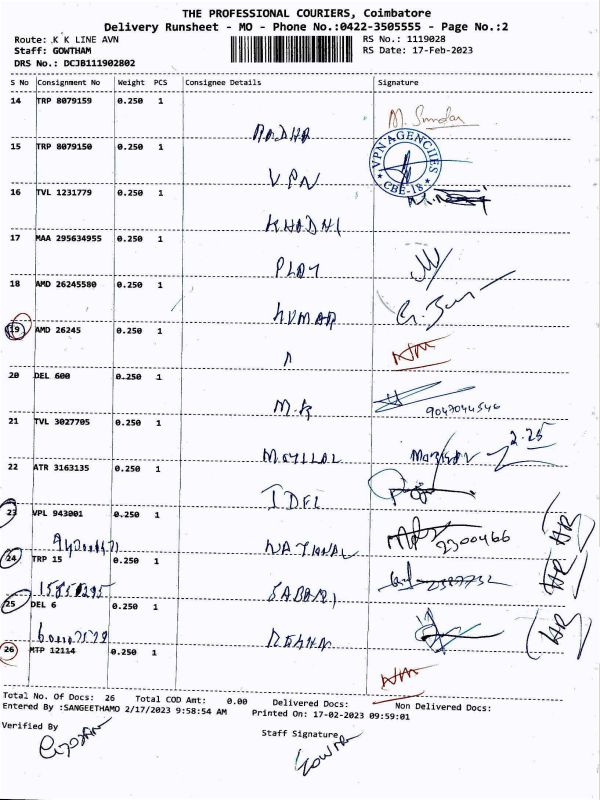 THE PROFESSIONAL COURIERS, Coimbatore
Delivery Runsheet - MO - Phone No.:0422-3505555 - Page No.:2
Route: K K LINE AVN RS No.: 1119028
Staff: GOWTHAM RS Date: 17-Feb-2023
DRS No.: DCJB111902802
S No Consignment No Weight PCS Consignee Details Signature
14 TRP 8079159 0.250 1
M. Sundar
15 TRP 8079150 0.250 1
VPN AGENCIIES
CBE-18
VPN
16 TVL 1231779 0.250 1
KHADHI
17 MAA 295634955 0.250 1
PLAY
18 AMD 26245580 0.250 1
KUMAR
19 AMD 26245 0.250 1
A
20 DEL 600 0.250 1
M.K 9047044546
21 TVL 3027705 0.250 1
2.25
22 ATR 3163135 0.250 1
IDFL
23 VPL 943001 0.250 1
NATIONAL 2300466
24 TRP 15 0.250 1
SABARI
25 DEL 6 0.250 1
26 MTP 12114 0.250 1
Total No. Of Docs: 26 Total COD Amt: 0.00 Delivered Docs: Non Delivered Docs:
Entered By :SANGEETHAMO 2/17/2023 9:58:54 AM Printed On: 17-02-2023 09:59:01
Verified By Staff Signature